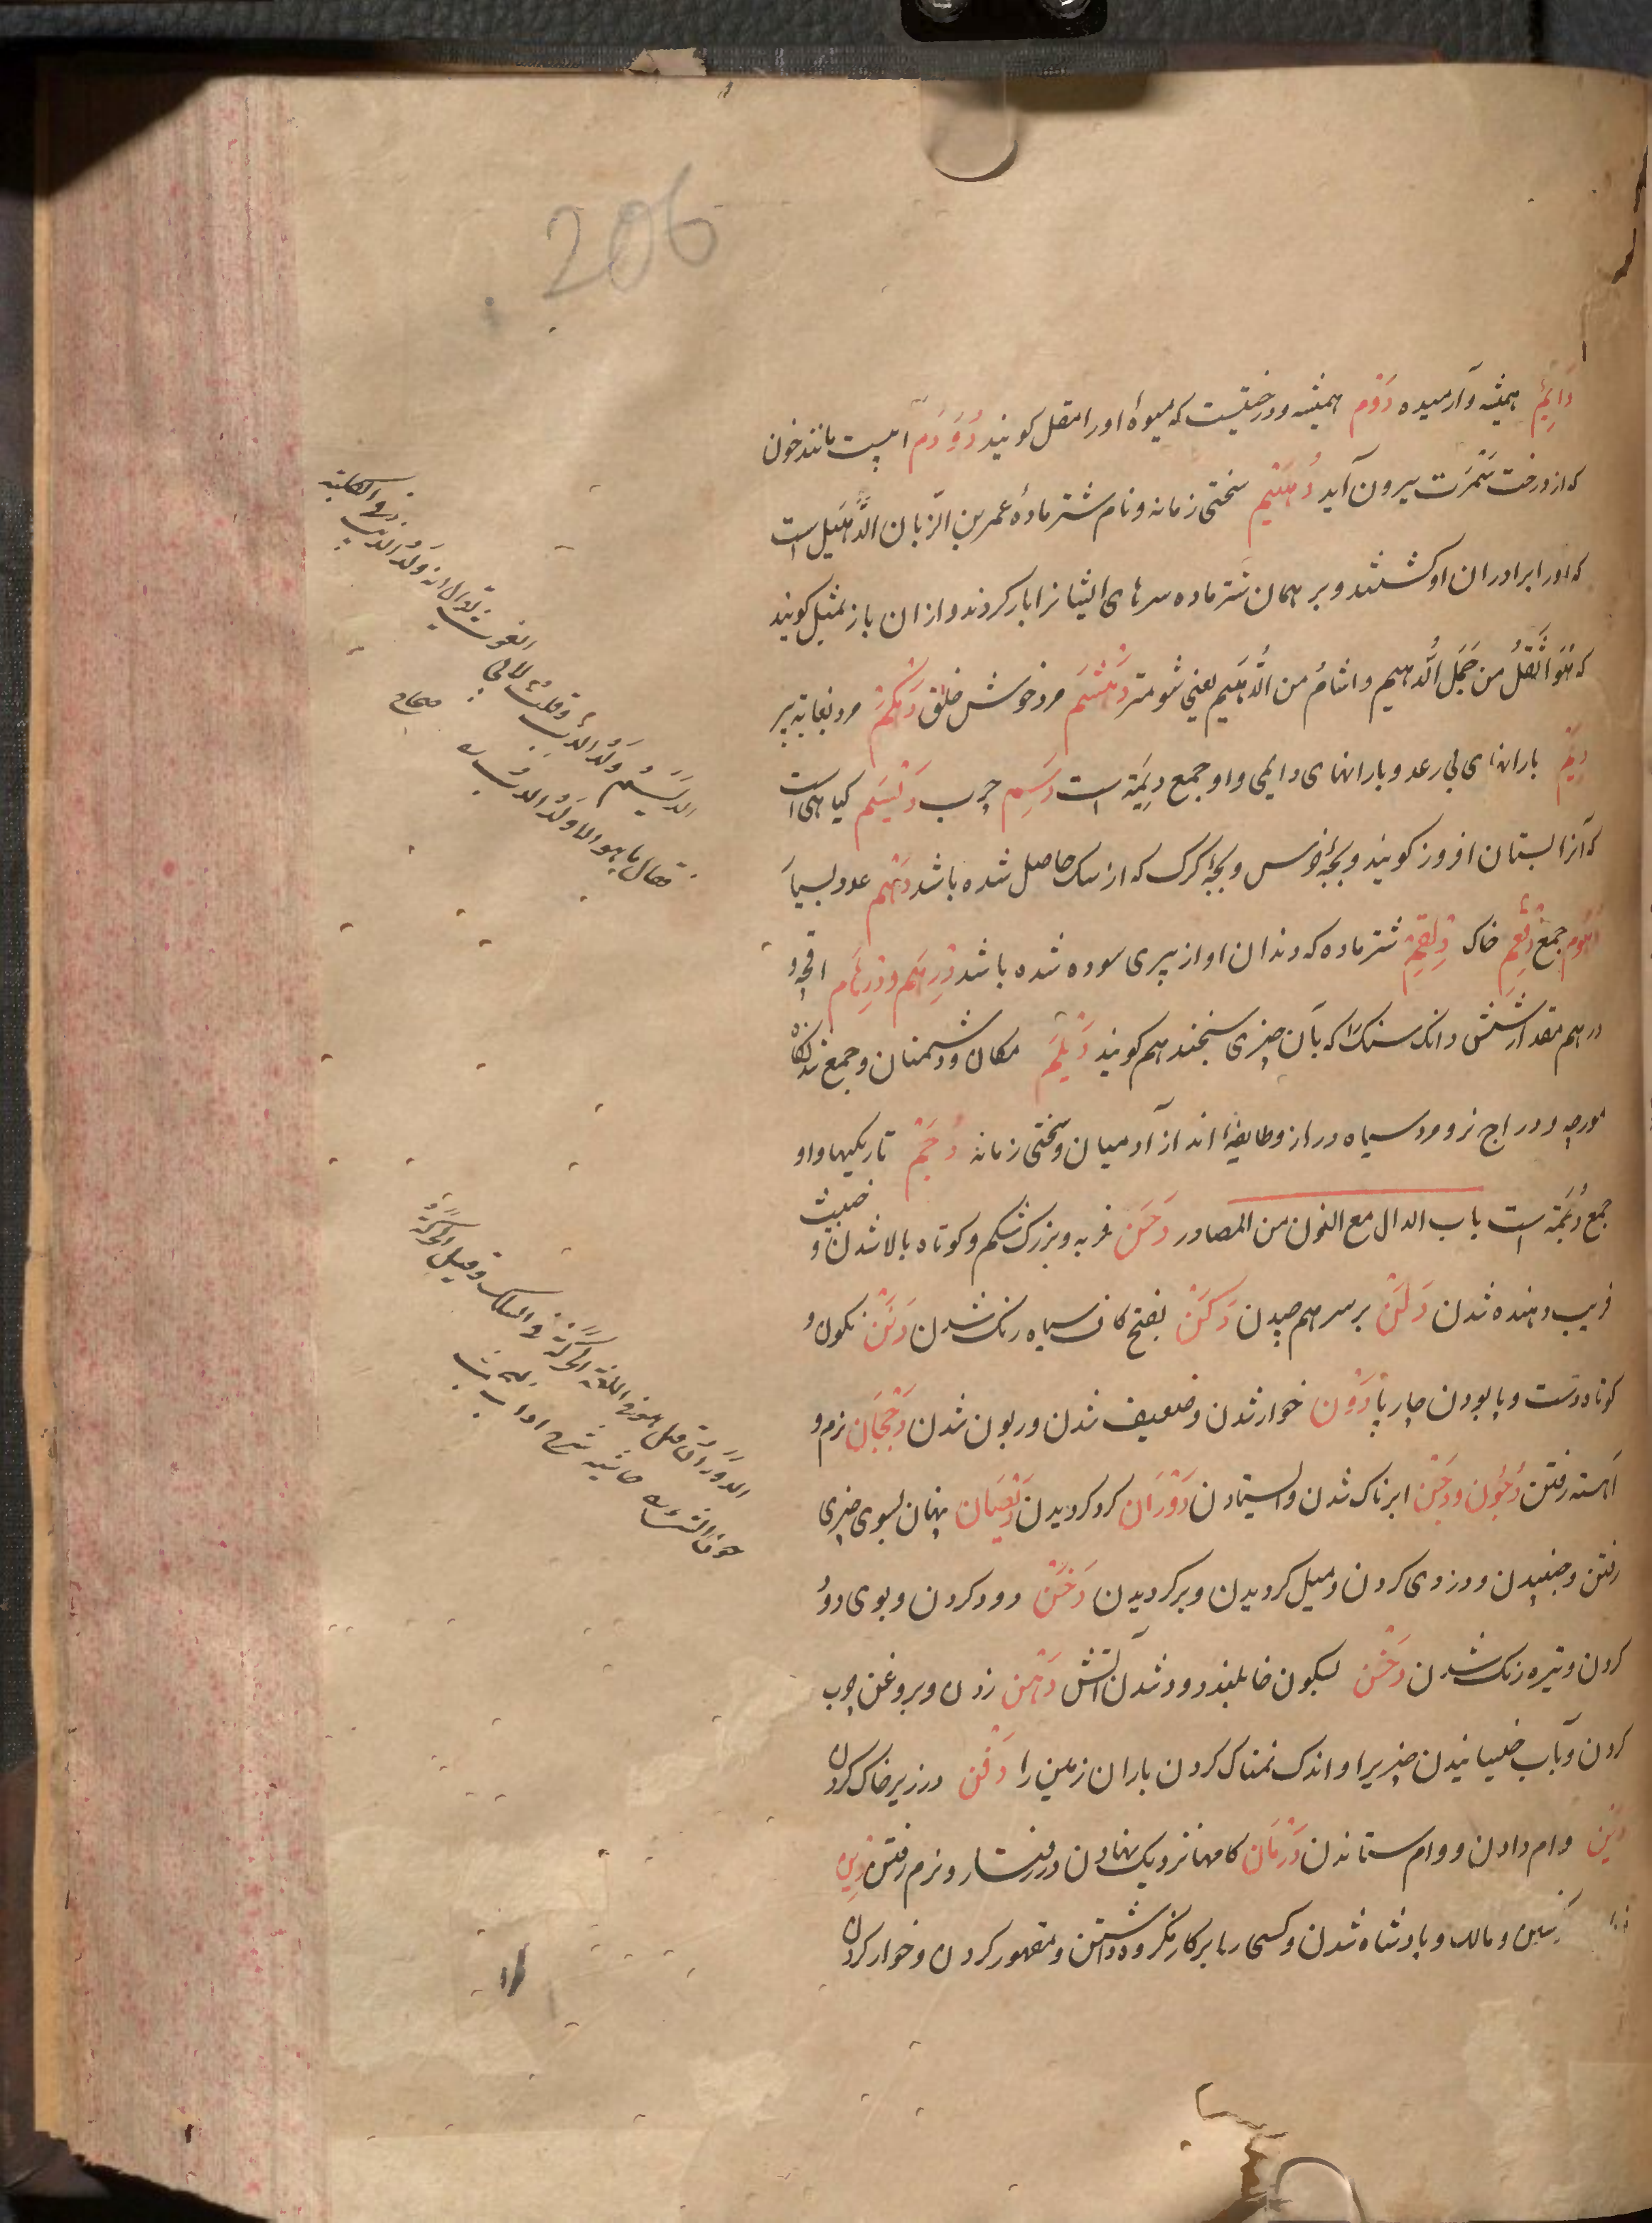 206
دَایِمٌ همیشه و آرمیده دَوْم همیشه و درختیست که میوهٔ او را مقل کویند دُوَدَم ابیست مانند خون
که از درخت سَمُرَت بیرون آید دُهَیْم سختی زمانه و نام شتر مادهٔ عمر بن الزّبان الذُّهَیل است
که او را برادران او کشتند و بر همان شتر ماده سرهای ایشانرا بار کردند و از ان باز مثل کویند
که هُوَ اَثْقَلُ من حَمَل الُّدهیم و اشأمُ من الُّدهَیم یعنی شومتر دَهْثَم مرد خوش خلق دَهْکَم مرد بغایة پیر
دِیَم بارانهای بی رعد و بارانهای دایمی و او جمع دِیمَة است دَسِم چرب دَیْسَم کیاهی است
که آنرا بستان افروز کویند و بچهٔ خرس و بچهٔ کرک که از سک حاصل شده باشد دَهْم عدد بسیار
دُهُوم جمع دِقْعِم خاک دِلْقِم شتر ماده که دندان او از پیری سوده شده باشد دِرْهَم و دِرْهَام اقچه و
درهم مقدار شش دانک سنک را که بآن چیزی سنجند هم کویند دَیْلَم مکان و دشمنان و جمع شدنکاه
مورچه و دراج نر و مرد سیاه دراز و طایفهٔ اند از آدمیان و سختی زمانه دُجَم تاریکیها و او
جمع دُجْمَة است باب الدال مع النون من المصادر دَحَن فربه و بزرک شکم و کوتاه بالا شدن و خبیث
فریب دهنده شدن دَلَن بر سر هم چیدن دَکَن بفتح کاف سیاه رنک شدن دَنَن نکون و
کوتاه دست و پا بودن چارپا دَوْن خوار شدن و ضعیف شدن و زبون شدن دَجَجَان نرم و
اهسته رفتن دُجُون و دَجْن ابرناک شدن و ایستادن دَوَرَان کرد کردیدن دَیَصَان پنهان بسوی چیزی
رفتن و جنبیدن و دزدی کردن و میل کردیدن و برکردیدن دَخَن دود کردن و بوی دود
کردن و تیره رنک شدن دَخْن بسکون خا بلند دود شدن آتش دَهْن زدن و بروغن چرب
کردن و بآب خیسانیدن چیزیرا و اندک نمناک کردن باران زمین را دَفْن در زیر خاک کردن
دَیْن وام دادن و وام ستاندن دَرَمَان کامها نزدیک نهادن در رفتار و نرم رفتن دِین
و مالک و پادشاه شدن و کسی را بر کار مکروه داشتن و مقهور کردن و خوار کردن
الدَیْسَمُ ولد الدبّ وقلتُ لابی
الغوث یقال انه ولد الذئب
من الکلبة
فقال ما هو الا ولد الدبّ
صحاح
الدَوَرَان قیل هو فی اللغة الحرکة فی السکک وقیل الحرکة
حاشیه شرح اداب البحث